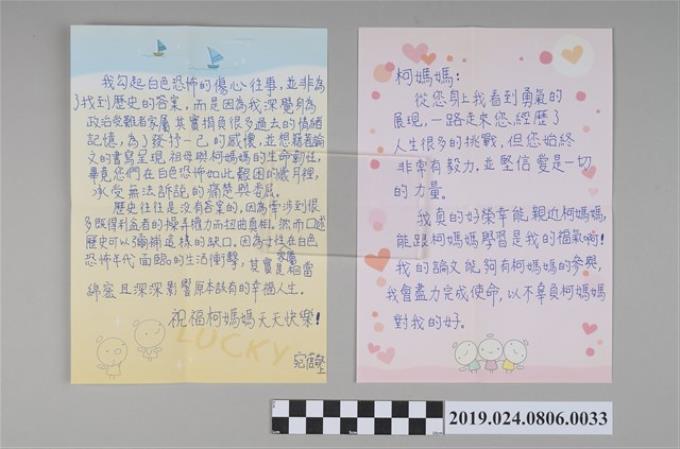 柯媽媽：
從您身上我看到勇氣的
展現，一路走來您經歷了
人生很多的挑戰，但您始終
非常有毅力，並堅信愛是一切
的力量。
我真的好榮幸能親近柯媽媽，
能跟柯媽媽學習是我的福氣啊！
我的論文能夠有柯媽媽的參與，
我會盡力完成使命，以不辜負柯媽媽
對我的好。
我勾起白色恐怖的傷心往事，並非為
了找到歷史的答案，而是因為我深覺身為
政治受難者家屬其實揹負很多過去的情緒
記憶，為了發抒一己的感懷，並想藉著論
文的書寫呈現祖母與柯媽媽的生命韌性，
畢竟您們在白色恐怖如此艱困的歲月裡，
承受無法訴說的痛楚與委屈。
歷史往往是沒有答案的，因為牽涉到很
多既得利益者的操弄權力而扭曲真相。然而口述
歷史可以彌補這樣的缺口。因為女性在白色
恐怖年代面臨的生活衝擊，其實家屬是相當
綿密且深深影響原本該有的幸福人生。
祝福柯媽媽天天快樂！
LUCKY
2019.024.0806.0033